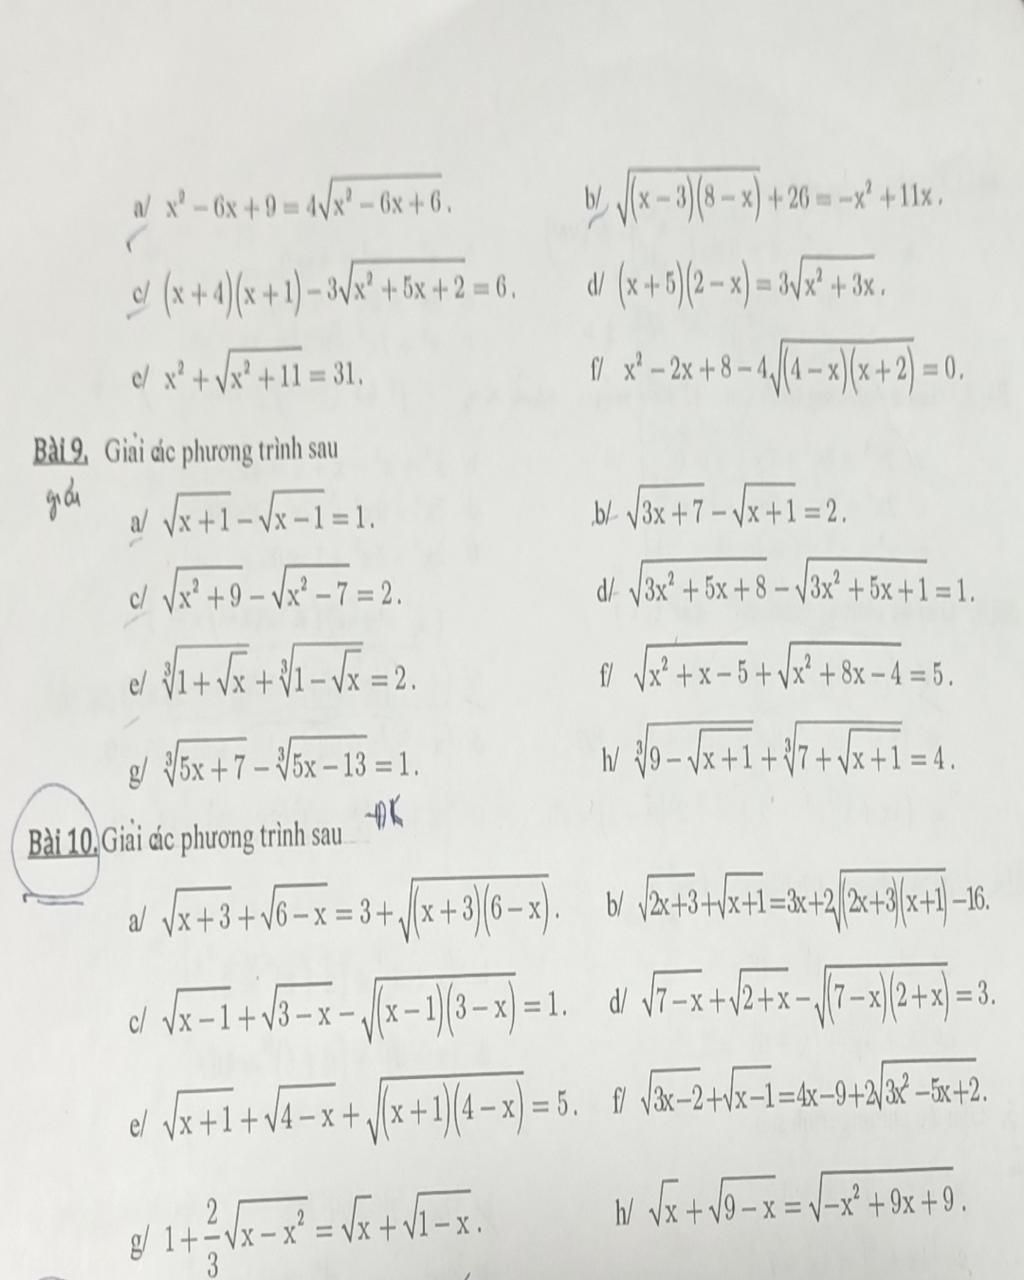 a/ x² − 6x + 9 = 4√(x² − 6x + 6).
b/ √((x − 3)(8 − x)) + 26 = −x² + 11x.
c/ (x + 4)(x + 1) − 3√(x² + 5x + 2) = 6.
d/ (x + 5)(2 − x) = 3√(x² + 3x).
e/ x² + √(x² + 11) = 31.
f/ x² − 2x + 8 − 4√((4 − x)(x + 2)) = 0.
Bài 9. Giải các phương trình sau
a/ √(x + 1) − √(x − 1) = 1.
b/ √(3x + 7) − √(x + 1) = 2.
c/ √(x² + 9) − √(x² − 7) = 2.
d/ √(3x² + 5x + 8) − √(3x² + 5x + 1) = 1.
e/ ∛(1 + √x) + ∛(1 − √x) = 2.
f/ √(x² + x − 5) + √(x² + 8x − 4) = 5.
g/ ∛(5x + 7) − ∛(5x − 13) = 1.
h/ ∛(9 − √(x + 1)) + ∛(7 + √(x + 1)) = 4.
Bài 10. Giải các phương trình sau ĐK
a/ √(x + 3) + √(6 − x) = 3 + √((x + 3)(6 − x)).
b/ √(2x+3)+√(x+1)=3x+2√((2x+3)(x+1))−16.
c/ √(x − 1) + √(3 − x) − √((x − 1)(3 − x)) = 1.
d/ √(7 − x) + √(2 + x) − √((7 − x)(2 + x)) = 3.
e/ √(x + 1) + √(4 − x) + √((x + 1)(4 − x)) = 5.
f/ √(3x−2)+√(x−1)=4x−9+2√(3x²−5x+2).
g/ 1 + 2/3 √(x − x²) = √x + √(1 − x).
h/ √x + √(9 − x) = √(−x² + 9x + 9).